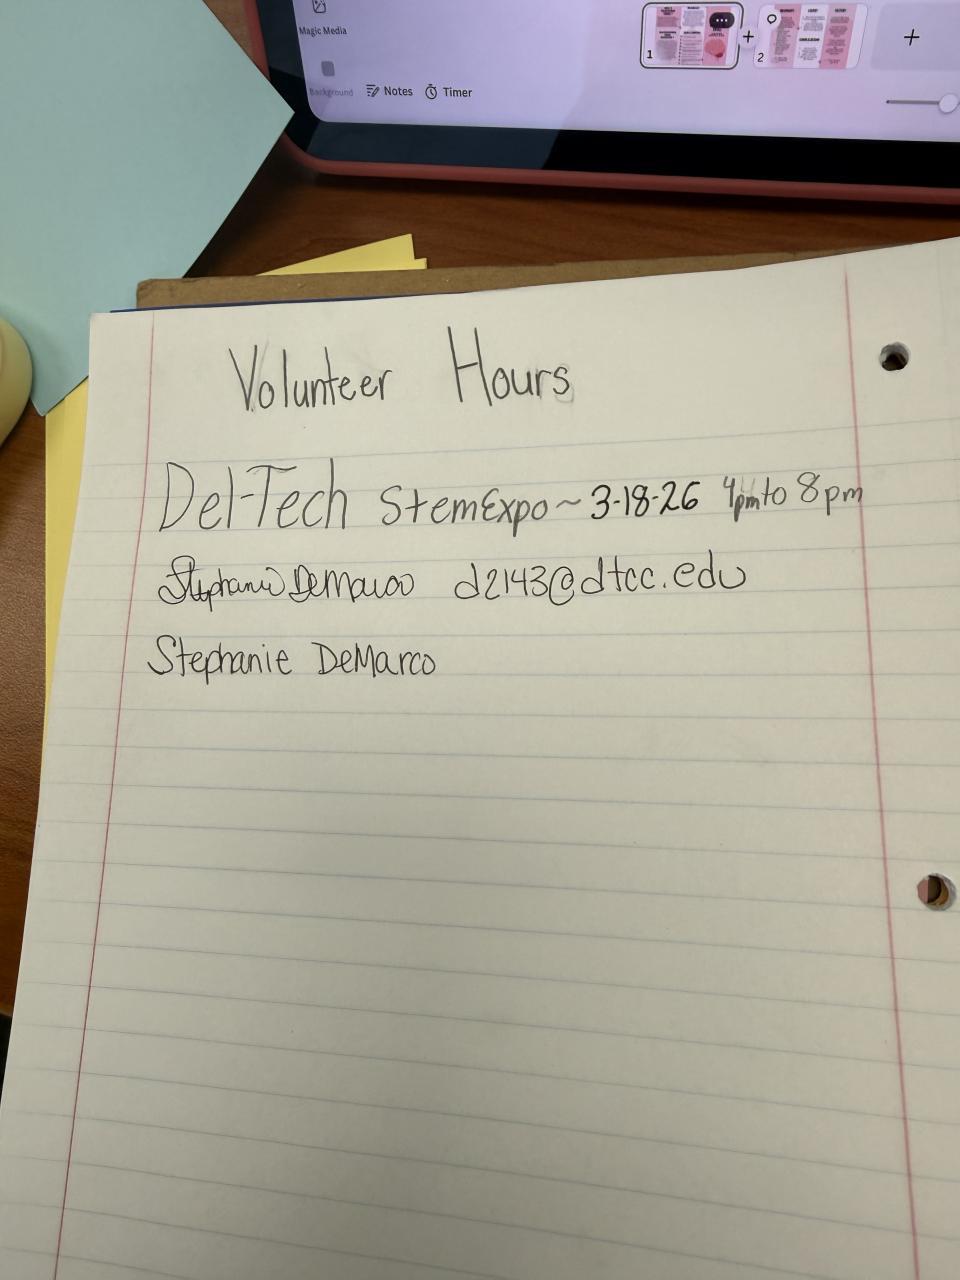 Magic Media
Background
Notes
Timer
1
+
2
+
Volunteer Hours
Del-Tech StemExpo ~ 3-18-26 4pm to 8pm
Stephanie DeMarco d2143@dtcc.edu
Stephanie DeMarco